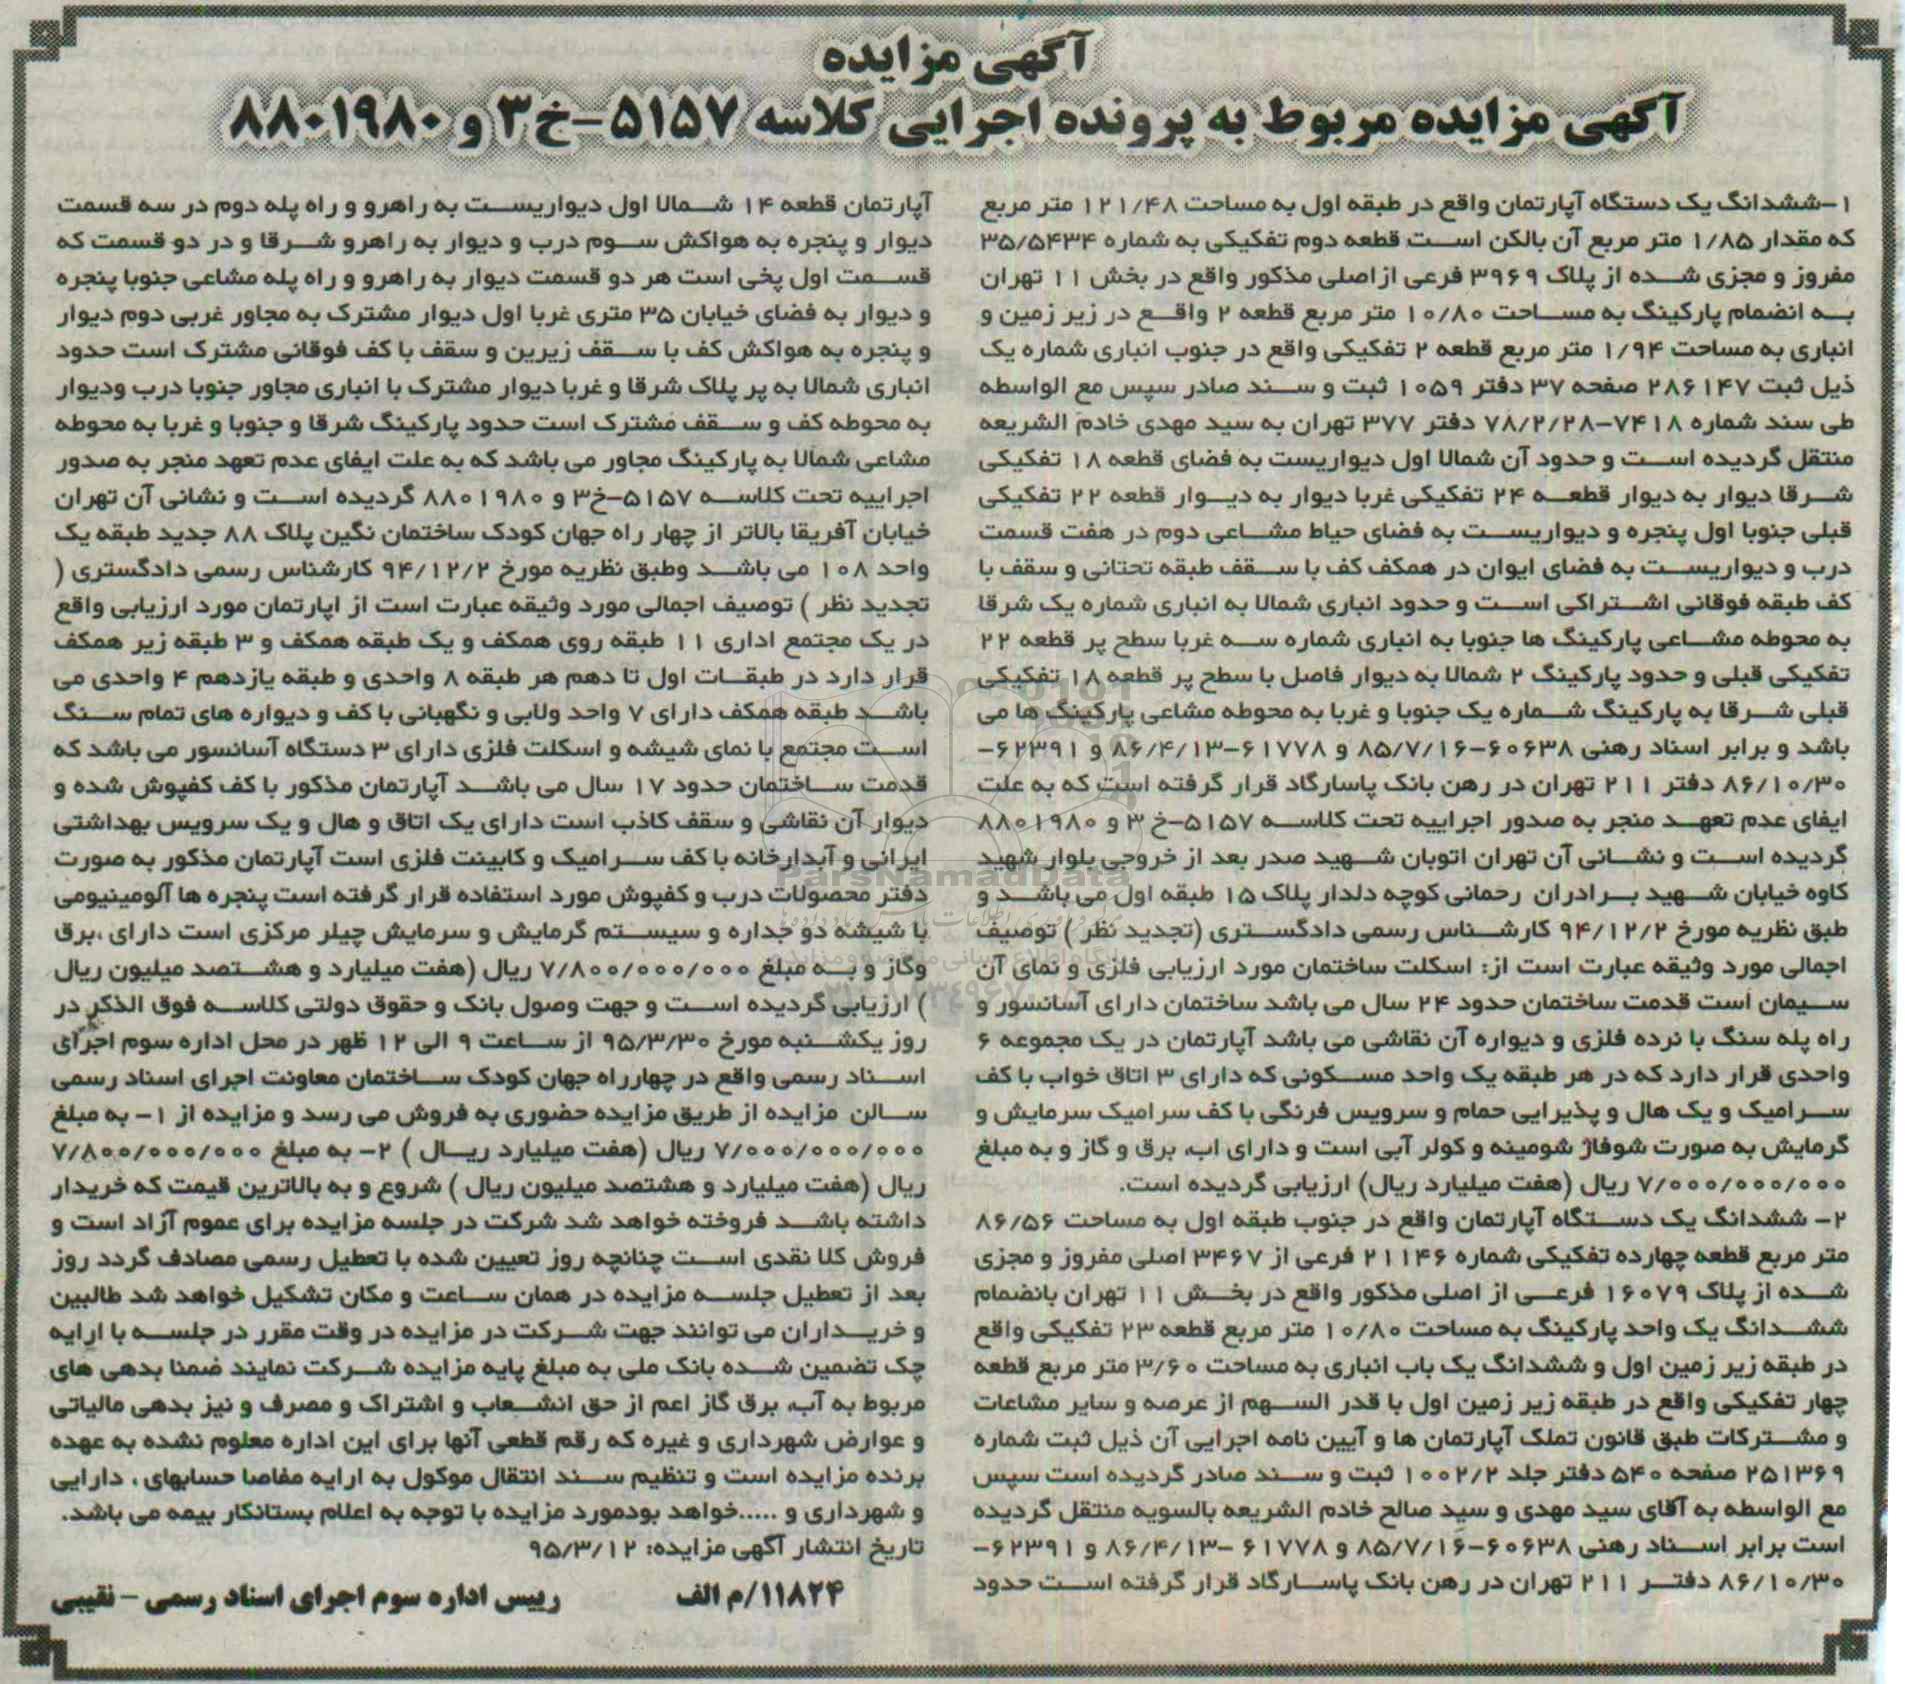 آگهی مزایده
آگهی مزایده مربوط به پرونده اجرایی کلاسه ۵۱۵۷-خ۳ و ۸۸۰۱۹۸۰
۱-ششدانگ یک دستگاه آپارتمان واقع در طبقه اول به مساحت ۱۲۱/۴۸ متر مربع
که مقدار ۱/۸۵ متر مربع آن بالکن است قطعه دوم تفکیکی به شماره ۳۵/۵۴۳۴
مفروز و مجزی شده از پلاک ۳۹۶۹ فرعی ازاصلی مذکور واقع در بخش ۱۱ تهران
به انضمام پارکینگ به مساحت ۱۰/۸۰ متر مربع قطعه ۲ واقع در زیر زمین و
انباری به مساحت ۱/۹۴ متر مربع قطعه ۲ تفکیکی واقع در جنوب انباری شماره یک
ذیل ثبت ۲۸۶۱۴۷ صفحه ۳۷ دفتر ۱۰۵۹ ثبت و سند صادر سپس مع الواسطه
طی سند شماره ۷۴۱۸-۷۸/۲/۲۸ دفتر ۳۷۷ تهران به سید مهدی خادم الشریعه
منتقل گردیده است و حدود آن شمالا اول دیواریست به فضای قطعه ۱۸ تفکیکی
شرقا دیوار به دیوار قطعه ۲۴ تفکیکی غربا دیوار به دیوار قطعه ۲۲ تفکیکی
قبلی جنوبا اول پنجره و دیواریست به فضای حیاط مشاعی دوم در هفت قسمت
درب و دیواریست به فضای ایوان در همکف کف با سقف طبقه تحتانی و سقف با
کف طبقه فوقانی اشتراکی است و حدود انباری شمالا به انباری شماره یک شرقا
به محوطه مشاعی پارکینگ ها جنوبا به انباری شماره سه غربا سطح پر قطعه ۲۲
تفکیکی قبلی و حدود پارکینگ ۲ شمالا به دیوار فاصل با سطح پر قطعه ۱۸ تفکیکی
قبلی شرقا به پارکینگ شماره یک جنوبا و غربا به محوطه مشاعی پارکینگ ها می
باشد و برابر اسناد رهنی ۶۰۶۳۸-۸۵/۷/۱۶ و ۶۱۷۷۸-۸۶/۴/۱۳ و ۶۲۳۹۱-
۸۶/۱۰/۳۰ دفتر ۲۱۱ تهران در رهن بانک پاسارگاد قرار گرفته است که به علت
ایفای عدم تعهد منجر به صدور اجراییه تحت کلاسه ۵۱۵۷-خ۳ و ۸۸۰۱۹۸۰
گردیده است و نشانی آن تهران اتوبان شهید صدر بعد از خروجی بلوار شهید
کاوه خیابان شهید برادران رحمانی کوچه دلدار پلاک ۱۵ طبقه اول می باشد و
طبق نظریه مورخ ۹۴/۱۲/۲ کارشناس رسمی دادگستری (تجدید نظر) توصیف
اجمالی مورد وثیقه عبارت است از: اسکلت ساختمان مورد ارزیابی فلزی و نمای آن
سیمان است قدمت ساختمان حدود ۲۴ سال می باشد ساختمان دارای آسانسور و
راه پله سنگ با نرده فلزی و دیواره آن نقاشی می باشد آپارتمان در یک مجموعه ۶
واحدی قرار دارد که در هر طبقه یک واحد مسکونی که دارای ۳ اتاق خواب با کف
سرامیک و یک هال و پذیرایی حمام و سرویس فرنگی با کف سرامیک سرمایش و
گرمایش به صورت شوفاژ شومینه و کولر آبی است و دارای اب، برق و گاز و به مبلغ
۷/۰۰۰/۰۰۰/۰۰۰ ریال (هفت میلیارد ریال) ارزیابی گردیده است.
۲- ششدانگ یک دستگاه آپارتمان واقع در جنوب طبقه اول به مساحت ۸۶/۵۶
متر مربع قطعه چهارده تفکیکی شماره ۲۱۱۴۶ فرعی از ۳۴۶۷ اصلی مفروز و مجزی
شده از پلاک ۱۶۰۷۹ فرعی از اصلی مذکور واقع در بخش ۱۱ تهران بانضمام
ششدانگ یک واحد پارکینگ به مساحت ۱۰/۸۰ متر مربع قطعه ۲۳ تفکیکی واقع
در طبقه زیر زمین اول و ششدانگ یک باب انباری به مساحت ۳/۶۰ متر مربع قطعه
چهار تفکیکی واقع در طبقه زیر زمین اول با قدر السهم از عرصه و سایر مشاعات
و مشترکات طبق قانون تملک آپارتمان ها و آیین نامه اجرایی آن ذیل ثبت شماره
۲۵۱۳۶۹ صفحه ۵۴۰ دفتر جلد ۱۰۰۲/۲ ثبت و سند صادر گردیده است سپس
مع الواسطه به آقای سید مهدی و سید صالح خادم الشریعه بالسویه منتقل گردیده
است برابر اسناد رهنی ۶۰۶۳۸-۸۵/۷/۱۶ و ۶۱۷۷۸ -۸۶/۴/۱۳ و ۶۲۳۹۱-
۸۶/۱۰/۳۰ دفتر ۲۱۱ تهران در رهن بانک پاسارگاد قرار گرفته است حدود
آپارتمان قطعه ۱۴ شمالا اول دیواریست به راهرو و راه پله دوم در سه قسمت
دیوار و پنجره به هواکش سوم درب و دیوار به راهرو شرقا و در دو قسمت که
قسمت اول پخی است هر دو قسمت دیوار به راهرو و راه پله مشاعی جنوبا پنجره
و دیوار به فضای خیابان ۳۵ متری غربا اول دیوار مشترک به مجاور غربی دوم دیوار
و پنجره به هواکش کف با سقف زیرین و سقف با کف فوقانی مشترک است حدود
انباری شمالا به پر پلاک شرقا و غربا دیوار مشترک با انباری مجاور جنوبا درب ودیوار
به محوطه کف و سقف مشترک است حدود پارکینگ شرقا و جنوبا و غربا به محوطه
مشاعی شمالا به پارکینگ مجاور می باشد که به علت ایفای عدم تعهد منجر به صدور
اجراییه تحت کلاسه ۵۱۵۷-خ۳ و ۸۸۰۱۹۸۰ گردیده است و نشانی آن تهران
خیابان آفریقا بالاتر از چهار راه جهان کودک ساختمان نگین پلاک ۸۸ جدید طبقه یک
واحد ۱۰۸ می باشد وطبق نظریه مورخ ۹۴/۱۲/۲ کارشناس رسمی دادگستری (
تجدید نظر ) توصیف اجمالی مورد وثیقه عبارت است از اپارتمان مورد ارزیابی واقع
در یک مجتمع اداری ۱۱ طبقه روی همکف و یک طبقه همکف و ۳ طبقه زیر همکف
قرار دارد در طبقات اول تا دهم هر طبقه ۸ واحدی و طبقه یازدهم ۴ واحدی می
باشد طبقه همکف دارای ۷ واحد ولابی و نگهبانی با کف و دیواره های تمام سنگ
است مجتمع با نمای شیشه و اسکلت فلزی دارای ۳ دستگاه آسانسور می باشد که
قدمت ساختمان حدود ۱۷ سال می باشد آپارتمان مذکور با کف کفپوش شده و
دیوار آن نقاشی و سقف کاذب است دارای یک اتاق و هال و یک سرویس بهداشتی
ایرانی و آبدارخانه با کف سرامیک و کابینت فلزی است آپارتمان مذکور به صورت
دفتر محصولات درب و کفپوش مورد استفاده قرار گرفته است پنجره ها آلومینیومی
با شیشه دو جداره و سیستم گرمایش و سرمایش چیلر مرکزی است دارای ،برق
وگاز و به مبلغ ۷/۸۰۰/۰۰۰/۰۰۰ ریال (هفت میلیارد و هشتصد میلیون ریال
) ارزیابی گردیده است و جهت وصول بانک و حقوق دولتی کلاسه فوق الذکر در
روز یکشنبه مورخ ۹۵/۳/۳۰ از ساعت ۹ الی ۱۲ ظهر در محل اداره سوم اجرای
اسناد رسمی واقع در چهارراه جهان کودک ساختمان معاونت اجرای اسناد رسمی
سالن مزایده از طریق مزایده حضوری به فروش می رسد و مزایده از ۱- به مبلغ
۷/۰۰۰/۰۰۰/۰۰۰ ریال (هفت میلیارد ریال ) ۲- به مبلغ ۷/۸۰۰/۰۰۰/۰۰۰
ریال (هفت میلیارد و هشتصد میلیون ریال ) شروع و به بالاترین قیمت که خریدار
داشته باشد فروخته خواهد شد شرکت در جلسه مزایده برای عموم آزاد است و
فروش کلا نقدی است چنانچه روز تعیین شده با تعطیل رسمی مصادف گردد روز
بعد از تعطیل جلسه مزایده در همان ساعت و مکان تشکیل خواهد شد طالبین
و خریداران می توانند جهت شرکت در مزایده در وقت مقرر در جلسه با ارایه
چک تضمین شده بانک ملی به مبلغ پایه مزایده شرکت نمایند ضمنا بدهی های
مربوط به آب، برق گاز اعم از حق انشعاب و اشتراک و مصرف و نیز بدهی مالیاتی
و عوارض شهرداری و غیره که رقم قطعی آنها برای این اداره معلوم نشده به عهده
برنده مزایده است و تنظیم سند انتقال موکول به ارایه مفاصا حسابهای ، دارایی
و شهرداری و .....خواهد بودمورد مزایده با توجه به اعلام بستانکار بیمه می باشد.
تاریخ انتشار آگهی مزایده: ۹۵/۳/۱۲
۱۱۸۲۴/م الف رییس اداره سوم اجرای اسناد رسمی - نقیبی
ParsNamadData